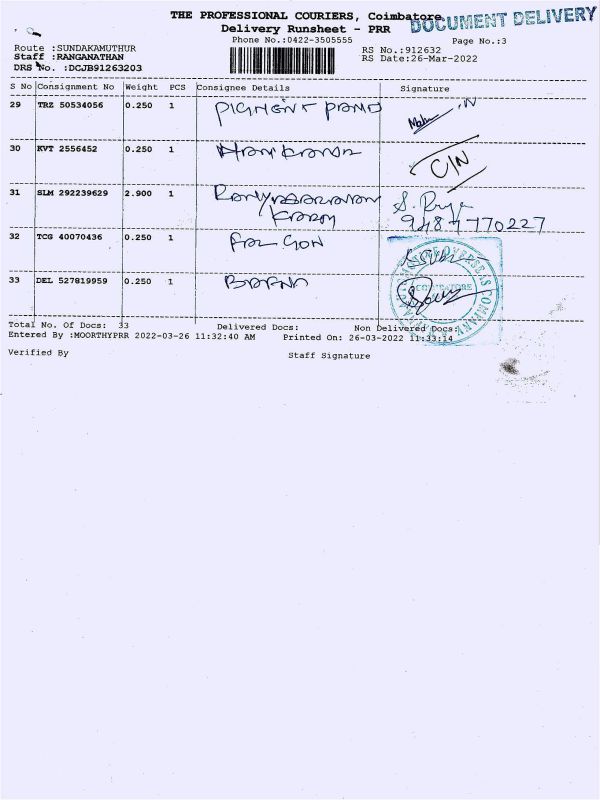 THE PROFESSIONAL COURIERS, Coimbatore
DOCUMENT DELIVERY
Delivery Runsheet - PRR
Phone No.:0422-3505555
Page No.:3
Route :SUNDAKAMUTHUR
RS No.:912632
Staff :RANGANATHAN
RS Date:26-Mar-2022
DRS No. :DCJB91263203
S No Consignment No Weight PCS Consignee Details Signature
29 TRZ 50534056 0.250 1
30 KVT 2556452 0.250 1 C/N
31 SLM 292239629 2.900 1 S. Priya
9487770227
32 TCG 40070436 0.250 1 FALCON
33 DEL 527819959 0.250 1
COIMBATORE
Total No. Of Docs: 33 Delivered Docs: Non Delivered Docs:
Entered By :MOORTHYPRR 2022-03-26 11:32:40 AM Printed On: 26-03-2022 11:33:14
Verified By Staff Signature